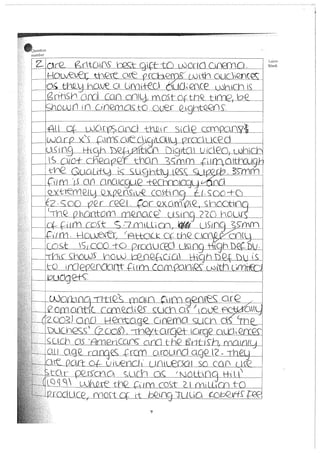 Question number
Leave blank
2 are Britains best gift to world cinema.
However there are problems with audiences
as they have a limited audience which is
British and can only most of the time, be
shown in cinemas to over eighteens.
All of Warps and their side company
Warp X's films are digitally produced
using High Definition Digital Video, which
is alot cheaper than 35mm film, although
the Quality is slightly less superb. 35mm
film is an analogue technology and
extremely expensive costing £1.500 to
£2.500 per reel. For example, shooting
'The Phantom menace' using 220 hours
of film cost 5.7 million, using 35mm
film. However 'Attack of the clones' only
cost 15,000 to produced using High Def DV.
This shows how beneficial High Def DV is
to independant film companies with limited
budgets.
Working Title's main film genres are
Romantic comedies such as 'Love Actually'
(2003) and Heritage cinema such as 'The
Duchess' (2008). They target large audiences
such as Americans and the British, mainly
all age ranges from around age 12. They
are part of vivendi universal so can use
star persona such as 'Notting Hill'
(1999) where the film cost 21 million to
produce, most of it being Julia Roberts fee